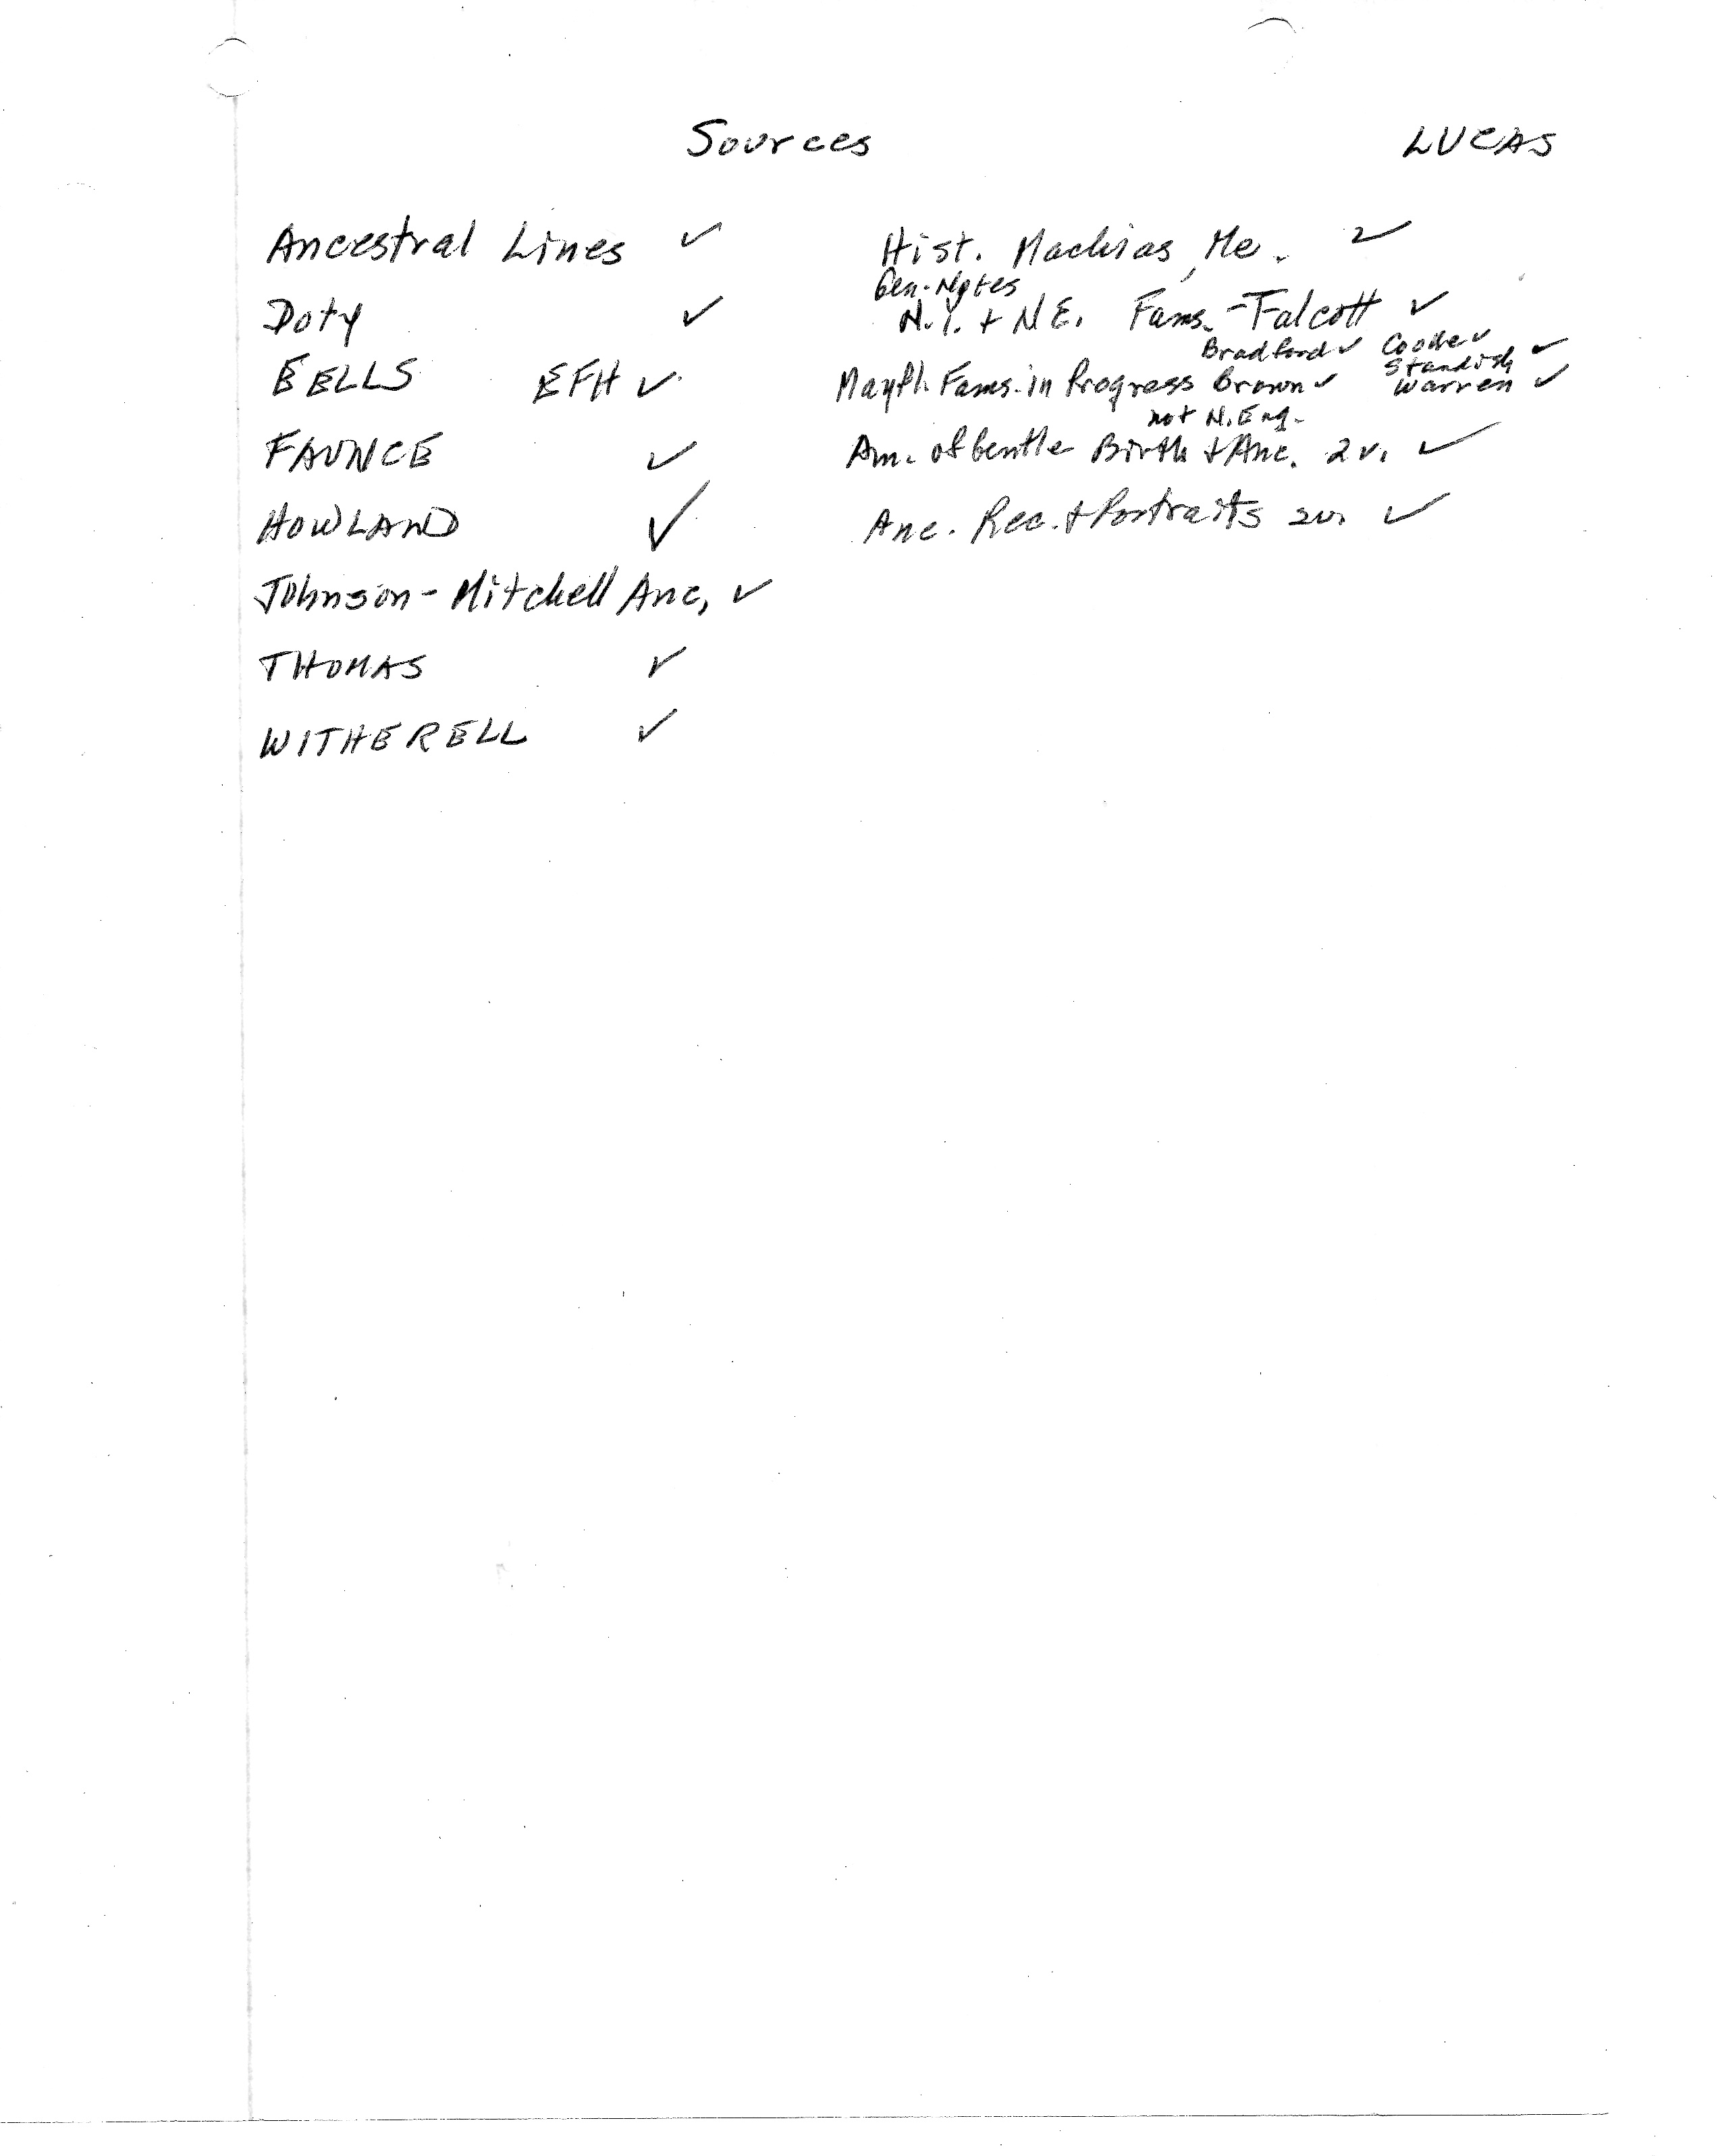 Sources LUCAS
Ancestral Lines ✓
Doty ✓
EELLS EFH ✓
FAUNCE ✓
HOWLAND ✓
Johnson-Mitchell Anc, ✓
THOMAS ✓
WITHERELL ✓
Hist. Machias, Me. ✓
Gen. Notes
N.Y. + N E. Fams. - Talcott ✓
Bradford ✓ Cooke ✓
Standish ✓
Mayfl. Fams. in Progress Brown ✓ Warren ✓
not N. Eng.
Am. of Gentle Birth + Anc. 2 v. ✓
Anc. Rec. + Portraits 2v. ✓